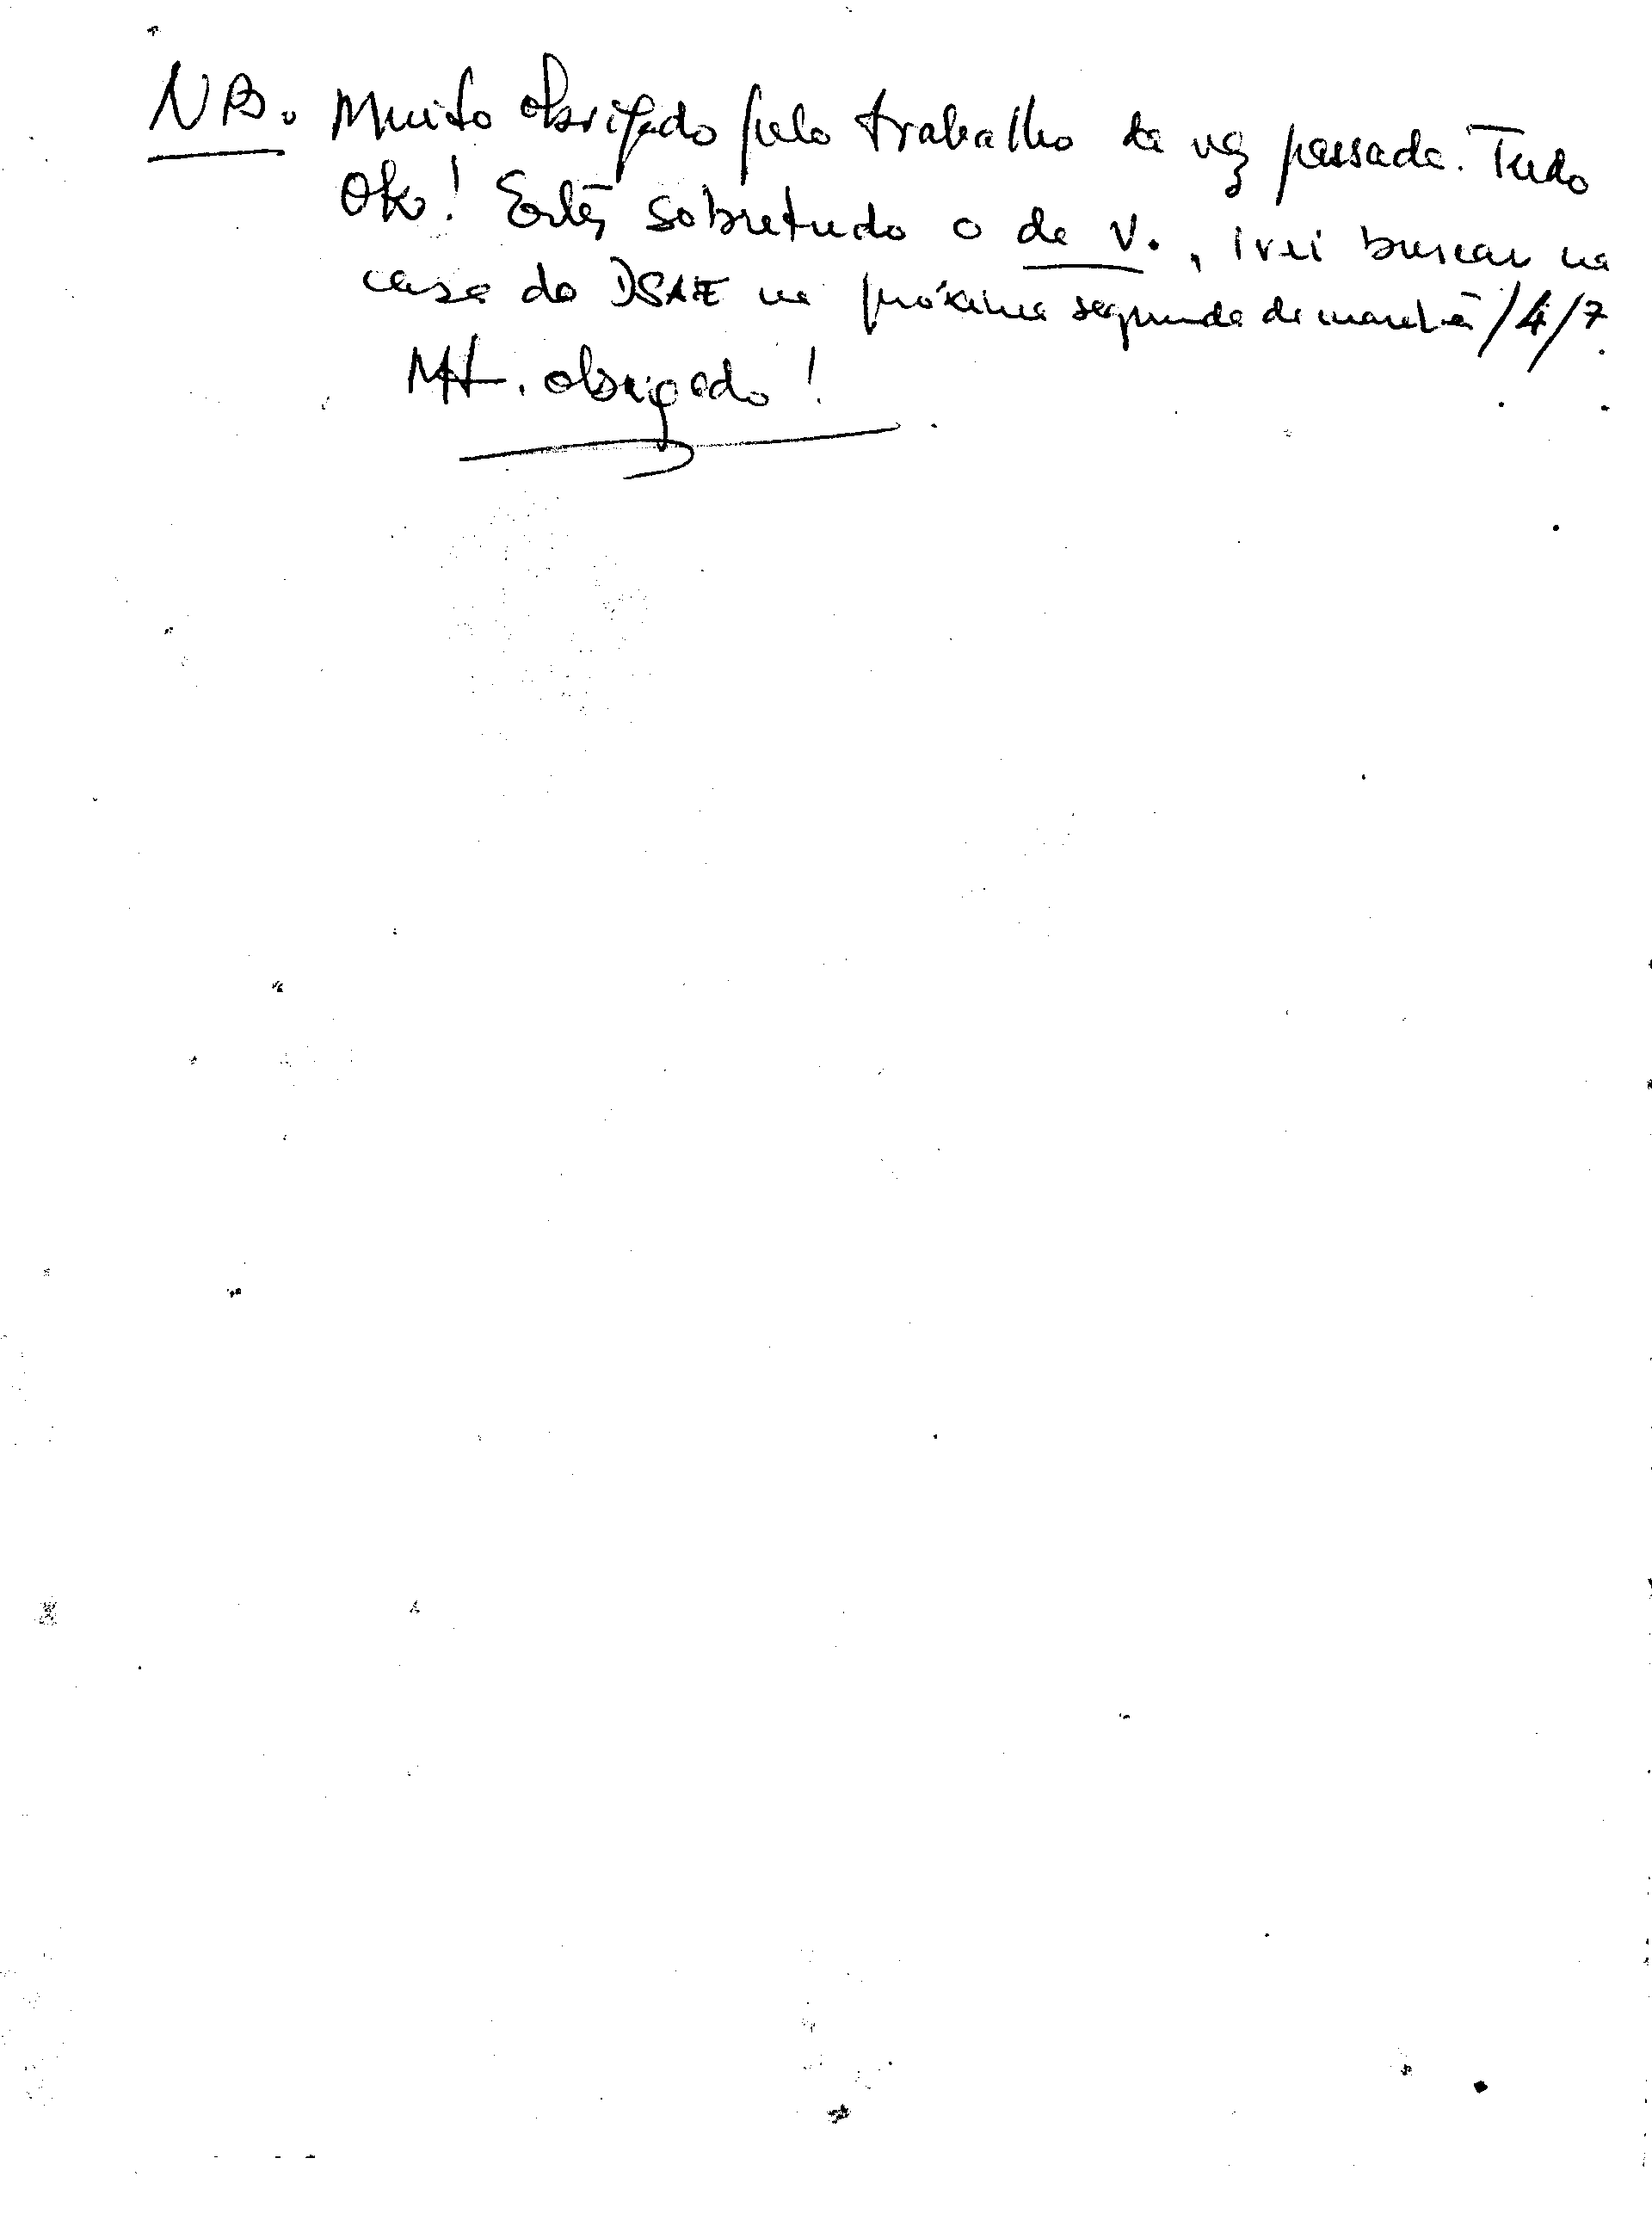 NB. Muito obrigado pelo trabalho da vez passada. Tudo
Ok! sobretudo o de V., irei buscar na
casa do DSAE na próxima segunda de manhã /4/7.
Mt. obrigado!